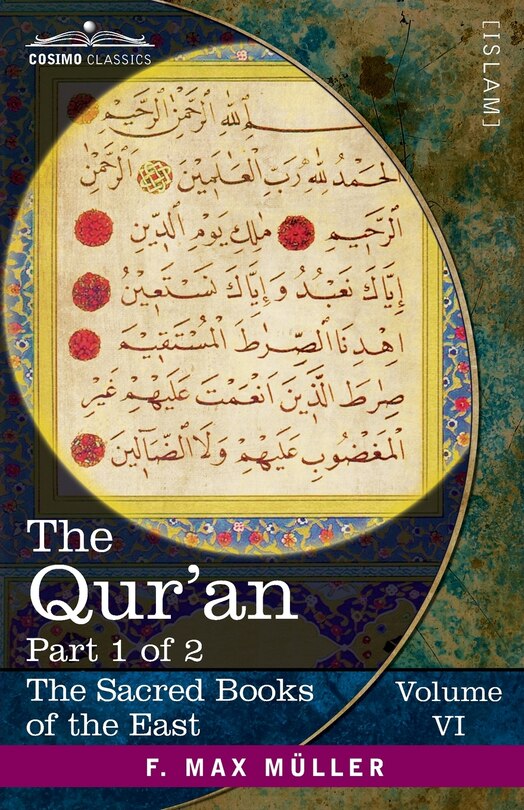 COSIMO CLASSICS
[ISLAM]
بسم الله الرحمن الرحيم
الحمد لله رب العلمين الرحمن
الرحيم ملك يوم الدين
إياك نعبد وإياك نستعين
اهدنا الصراط المستقيم
صراط الذين أنعمت عليهم غير
المغضوب عليهم ولا الضالين
The
Qur'an
Part 1 of 2
The Sacred Books
of the East
Volume
VI
F. MAX MÜLLER